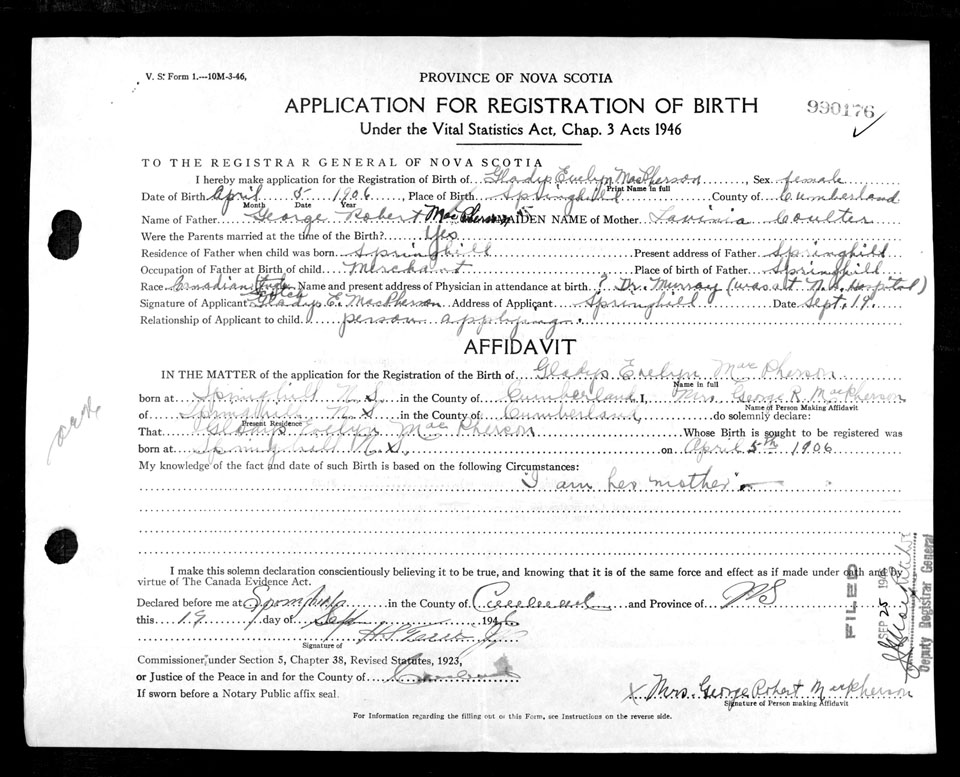 V. S. Form 1.---10M-3-46,
PROVINCE OF NOVA SCOTIA
APPLICATION FOR REGISTRATION OF BIRTH
990176
Under the Vital Statistics Act, Chap. 3 Acts 1946
TO THE REGISTRAR GENERAL OF NOVA SCOTIA
I hereby make application for the Registration of Birth of Gladys Evelyn MacPherson, Sex female
Print Name in full
Date of Birth April 5 1906, Place of Birth Springhill County of Cumberland
Month Date Year
Name of Father George Robert MacPherson MAIDEN NAME of Mother Lavinia Coulter
Were the Parents married at the time of the Birth? Yes
Residence of Father when child was born Springhill Present address of Father Springhill
Occupation of Father at Birth of child Merchant Place of birth of Father Springhill
Race Canadian Name and present address of Physician in attendance at birth ? Dr. Murray (was at N.S. Hospital)
Signature of Applicant Gladys E. MacPherson Address of Applicant Springhill Date Sept. 19
Relationship of Applicant to child person applying.
AFFIDAVIT
IN THE MATTER of the application for the Registration of the Birth of Gladys Evelyn MacPherson
Name in full
born at Springhill N.S. in the County of Cumberland I, Mrs George R. MacPherson
Name of Person Making Affidavit
of Springhill N S in the County of Cumberland, do solemnly declare:
Present Residence
That Gladys Evelyn MacPherson Whose Birth is sought to be registered was
born at Springhill N.S. on April 5th 1906
My knowledge of the fact and date of such Birth is based on the following Circumstances:
"I am her mother"
I make this solemn declaration conscientiously believing it to be true, and knowing that it is of the same force and effect as if made under oath and by
virtue of The Canada Evidence Act.
Declared before me at Springhill in the County of Cumberland and Province of NS
this 19 day of Sept 1946
Signature of
Commissioner, under Section 5, Chapter 38, Revised Statutes, 1923,
or Justice of the Peace in and for the County of Cumberland
If sworn before a Notary Public affix seal.
X Mrs. George Robert MacPherson
Signature of Person making Affidavit
For Information regarding the filling out of this Form, see Instructions on the reverse side.
FILED
SEP 25 194
Deputy Registrar General